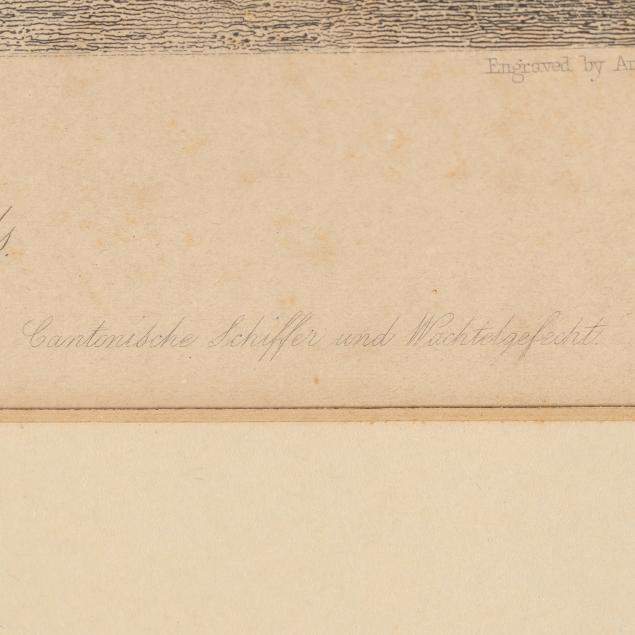 Engraved by
Cantonische Schiffer und Wachtelgefecht.